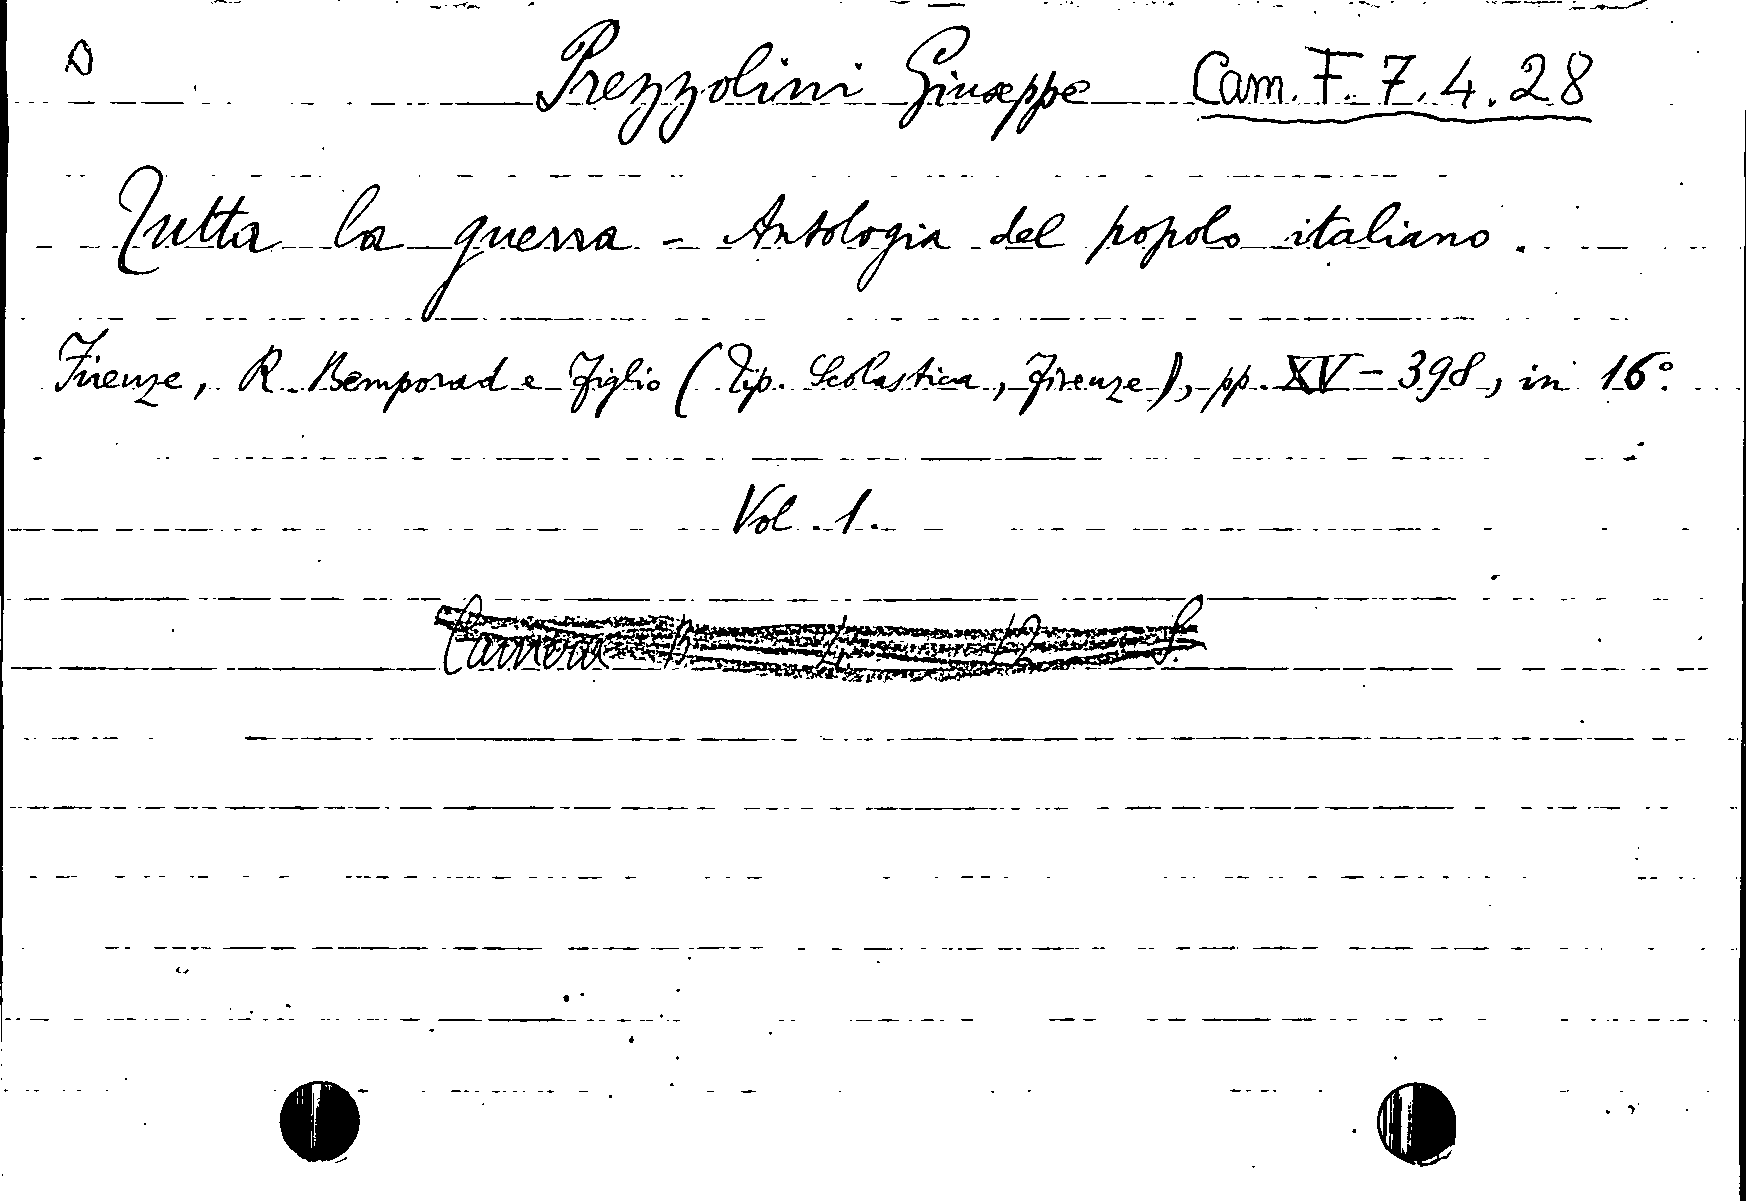 D Prezzolini Giuseppe Cam. F. 7. 4. 28
Tutta la guerra - Antologia del popolo italiano.
Firenze, R. Bemporad e figlio (Tip. Scolastica, Firenze), pp. XV - 398, in 16°.
Vol. 1.
Camera